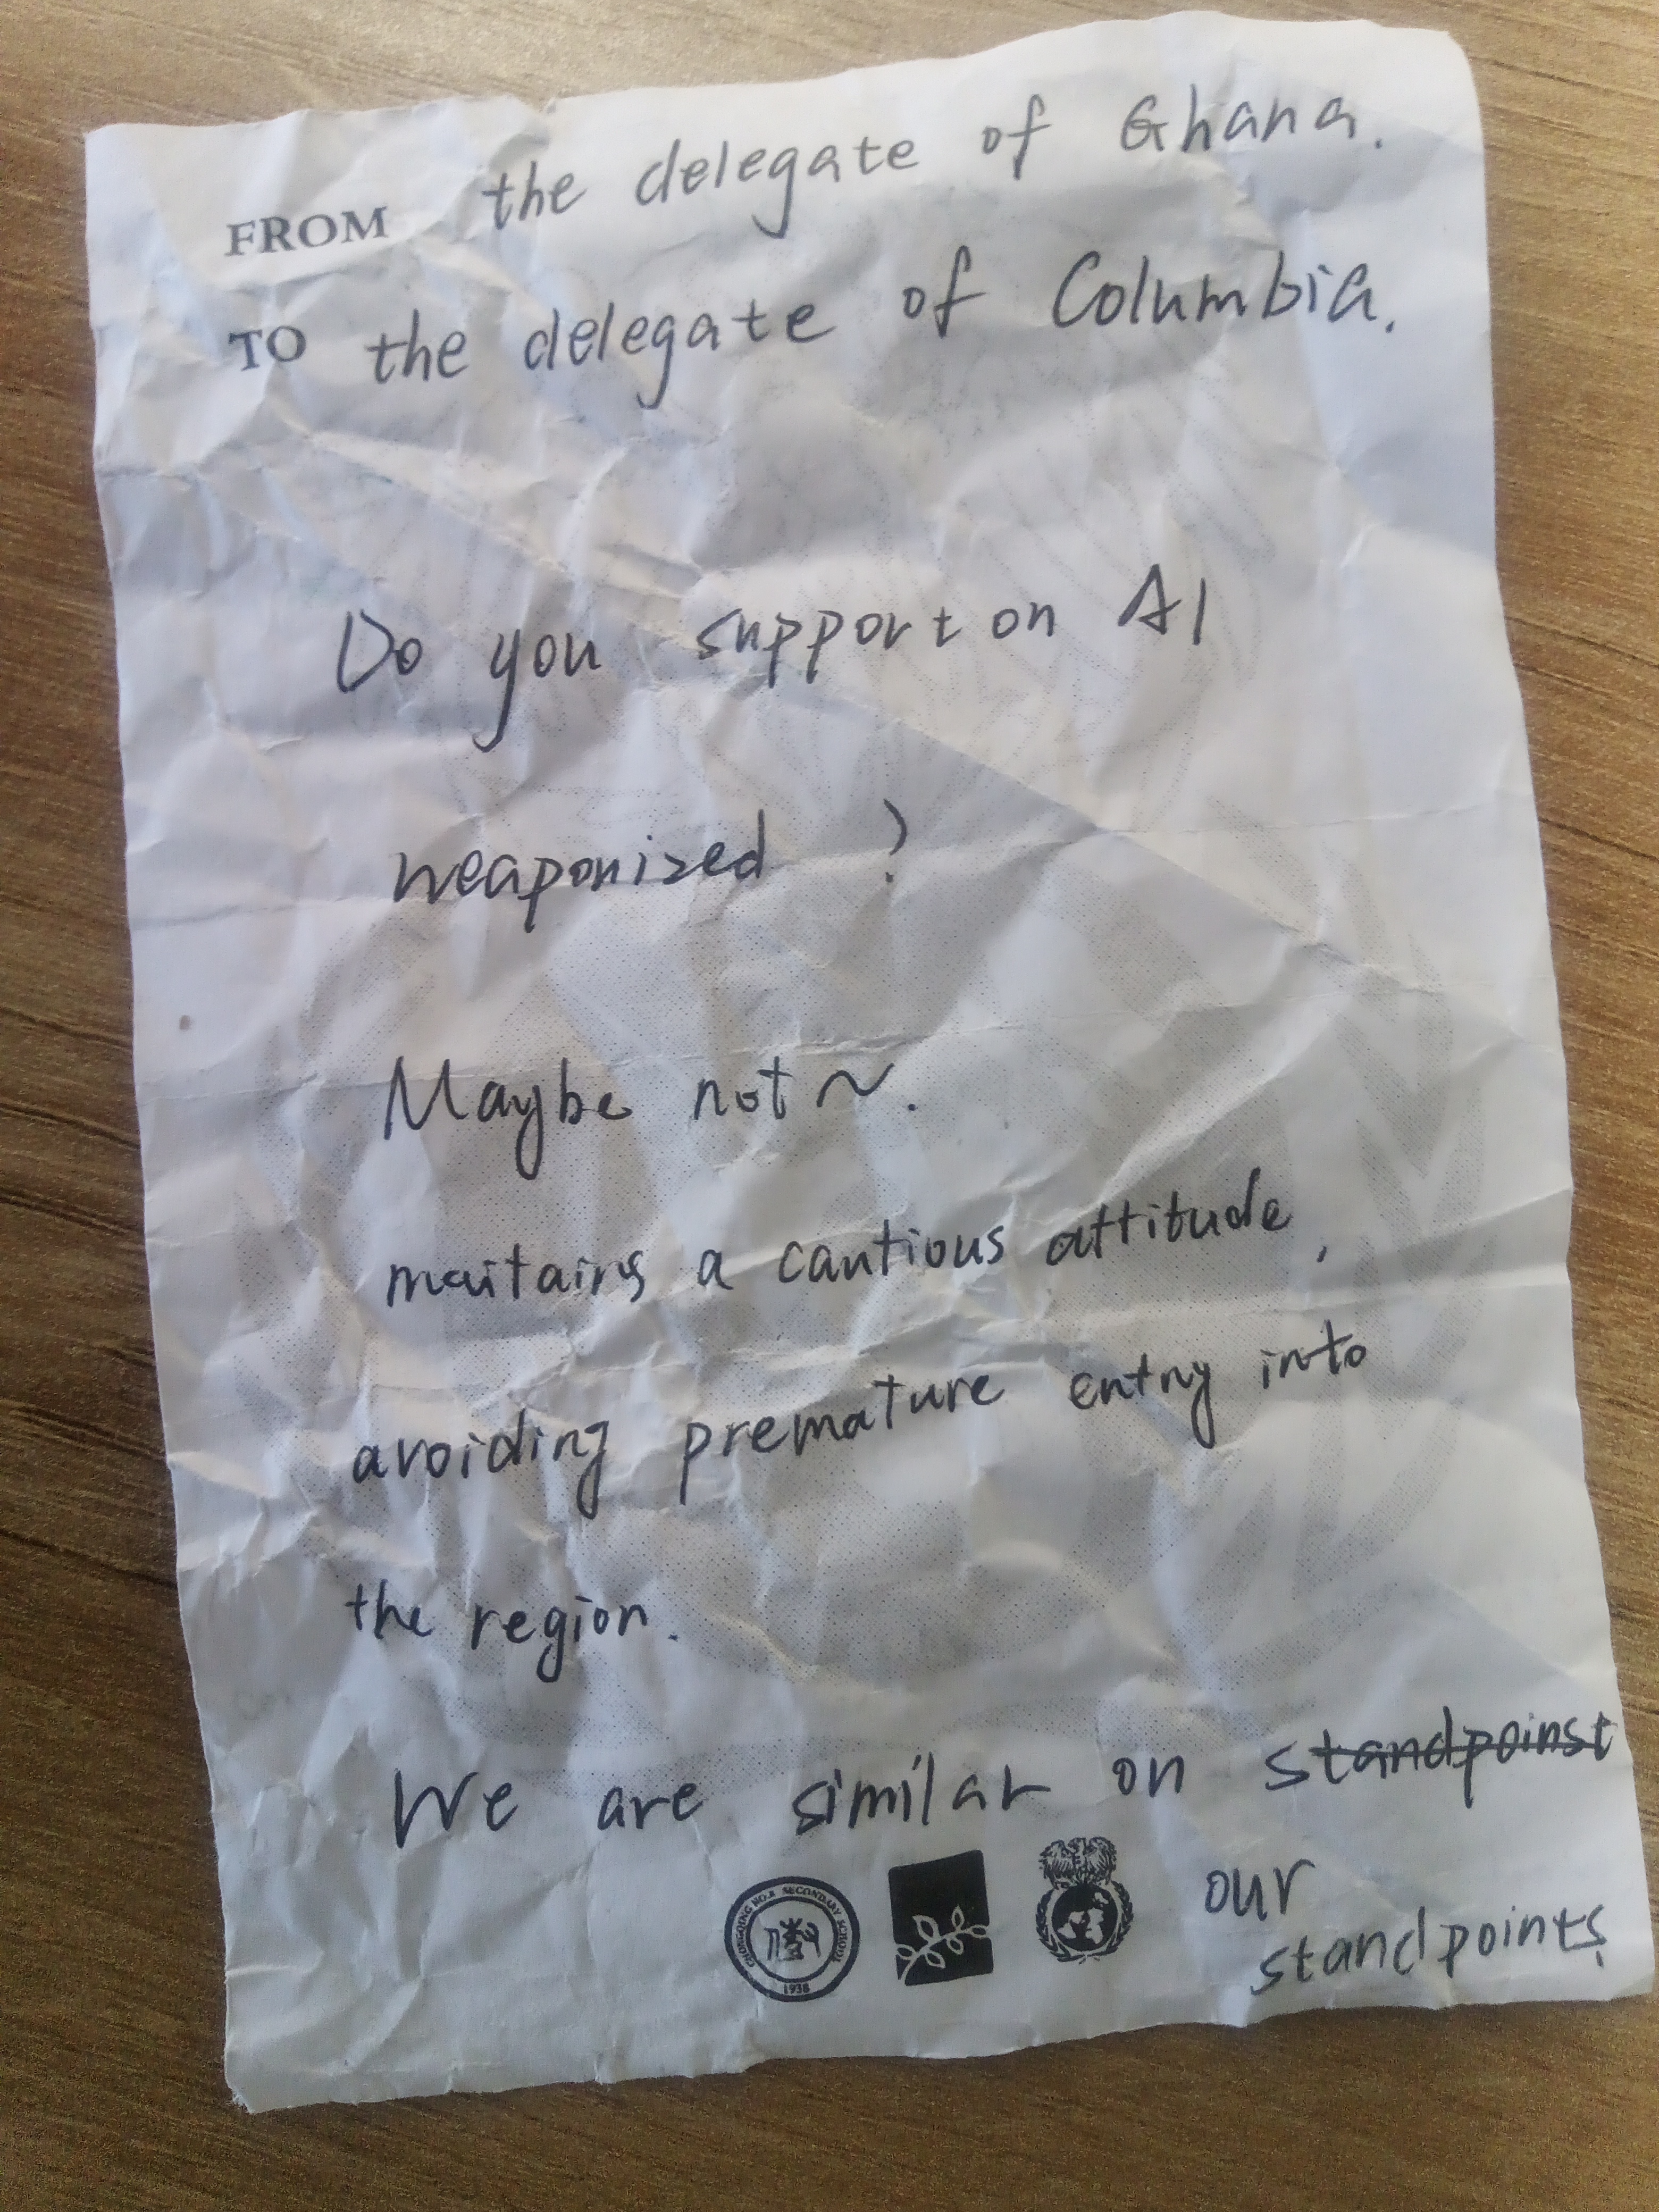 FROM the delegate of Ghana.
TO the delegate of Columbia.
Do you support on AI
weaponized ?
Maybe not~.
maitains a cautious attitude,
avoiding premature entry into
the region.
We are similar on standpoinst
our
standpoints.
CHONGQING NO.8 SECONDARY SCHOOL
1938